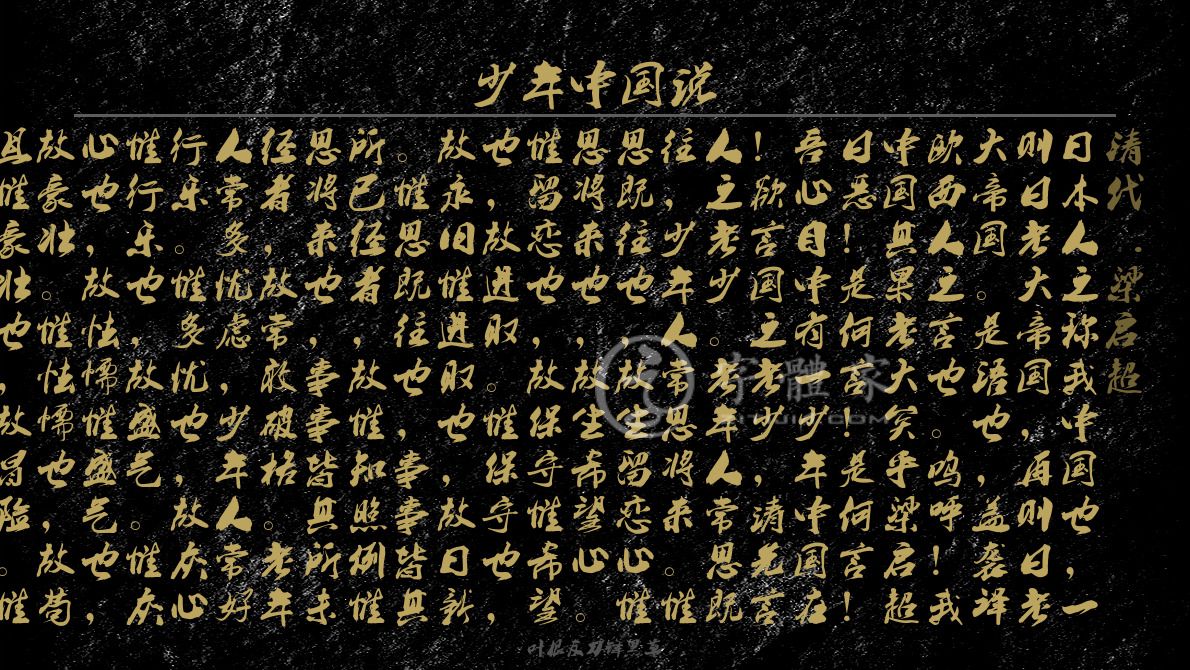 少年中国说
清代·梁启超
日本人之称我中国也，一
则曰老大帝国，再则曰老
大帝国。是语也，盖袭译
欧西人之言也。呜呼！我
中国其果老大矣乎梁启超
曰恶！是何言！是何言！
吾心目中有一少年中国在
！欲言国之老少，请先言
人之老少。老年人常思既
往，少年人常思将来。惟
思既往也，故生留恋心惟
思将来也，故生希望心。
惟留恋也，故保守惟希望
也，故进取。惟保守也，
故永旧惟进取也，故日新
。惟思既往也，事事皆其
所已经者，故惟知照例惟
思将来也，事事皆其所未
经者，故常敢破格。老年
人常多忧虑，少年人常好
行乐。惟多忧也，故灰心
惟行乐也，故盛气。惟灰
心也，故怯懦惟盛气也，
故豪壮。惟怯懦也，故苟
且惟豪壮也，故冒险。惟
字體家
叶根友刀锋黑草